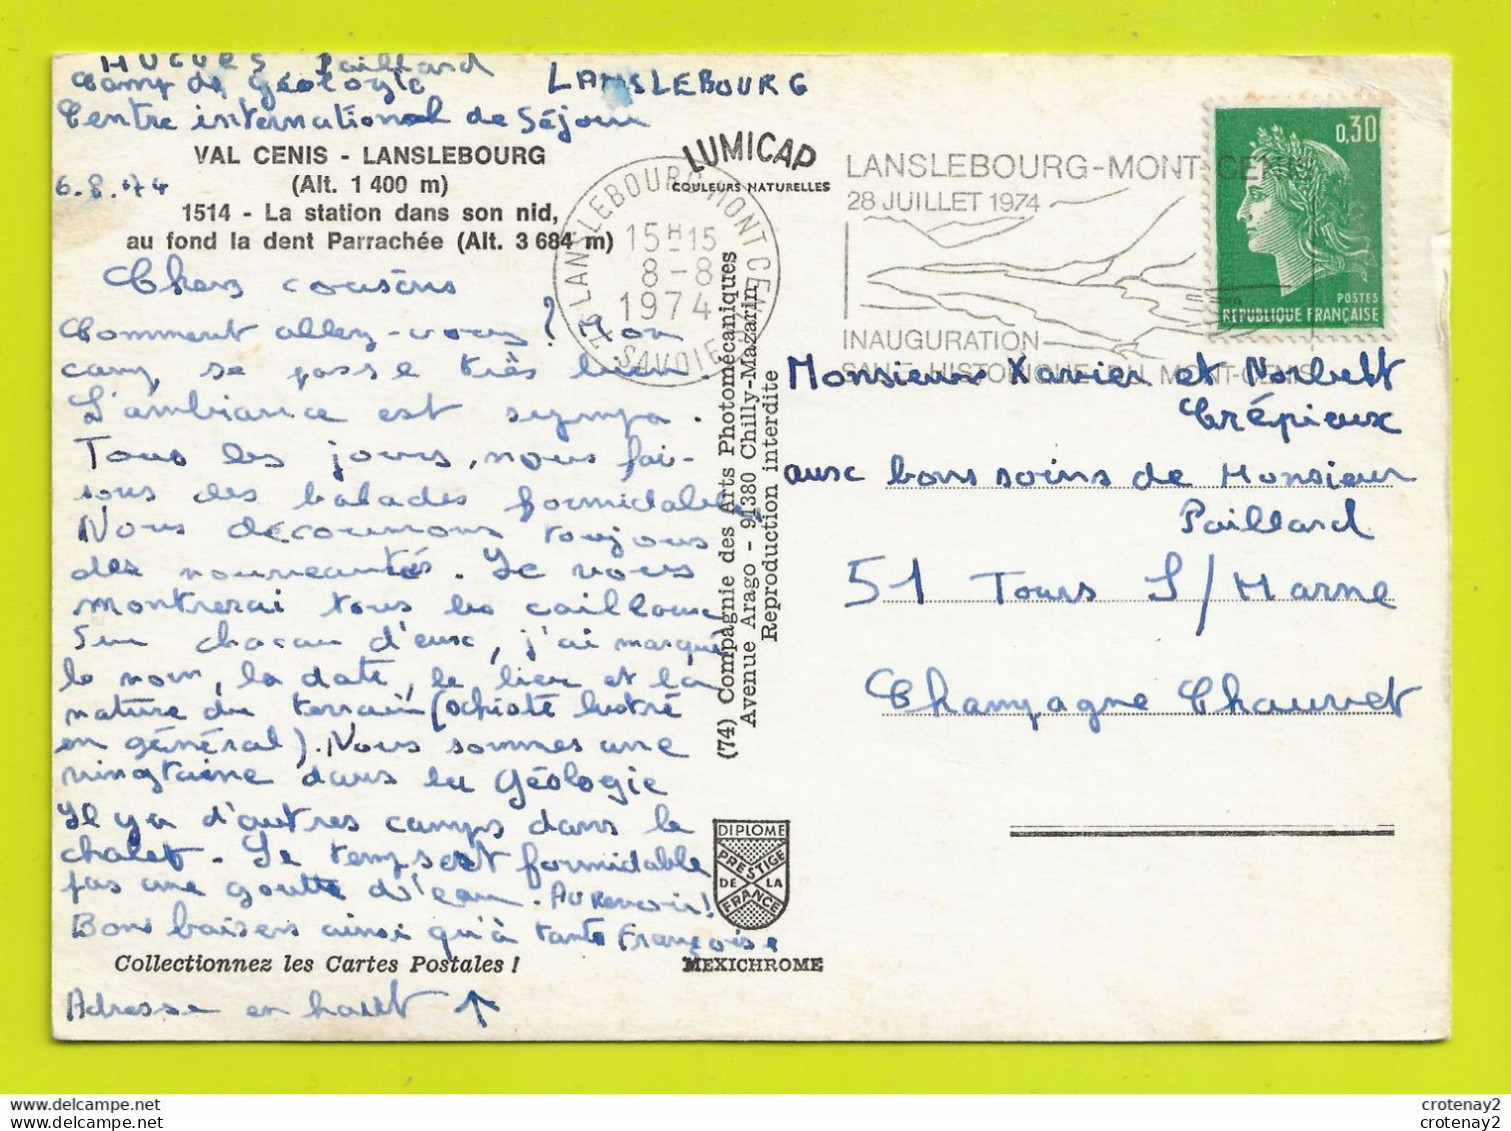 HUGUES Paillard
Camp de Géologie
LANSLEBOURG
Centre international de Séjour
VAL CENIS - LANSLEBOURG
(Alt. 1 400 m)
6.8.74
1514 - La station dans son nid,
au fond la dent Parrachée (Alt. 3 684 m)
Chers cousins
Comment allez-vous ? Mon
camp se passe très bien.
L'ambiance est sympa.
Tous les jours, nous fai-
sons des balades formidables
Nous découvrons toujours
des nouveautés. Je vous
montrerai tous les cailloux
Sur chacun d'eux, j'ai marqué
le nom, la date, le lieu et la
nature du terrain (schiste lustré
en général). Nous sommes une
vingtaine dans la Géologie
Il y a d'autres camps dans le
chalet. Le temps est formidable
pas une goutte d'eau. Au Revoir!
Bons baisers ainsi qu'à tante Françoise
Collectionnez les Cartes Postales !
Adresse en haut ↑
LUMICAP
COULEURS NATURELLES
73 LANSLEBOURG MONT CENIS
15H15
8-8
1974
SAVOIE
(74) Compagnie des Arts Photomécaniques
Avenue Arago - 91380 Chilly-Mazarin
Reproduction interdite
DIPLOME
PRESTIGE
DE LA
FRANCE
MEXICHROME
LANSLEBOURG-MONT-CENIS
28 JUILLET 1974
INAUGURATION
HISTORIQUE DU MONT-CENIS
0,30
POSTES
REPUBLIQUE FRANÇAISE
Monsieur Xavier et Norbert
Crépieux
aux bons soins de Monsieur
Paillard
51 Tours S/Marne
Champagne Chauvet
crotenay2
crotenay2
crotenay2
crotenay2